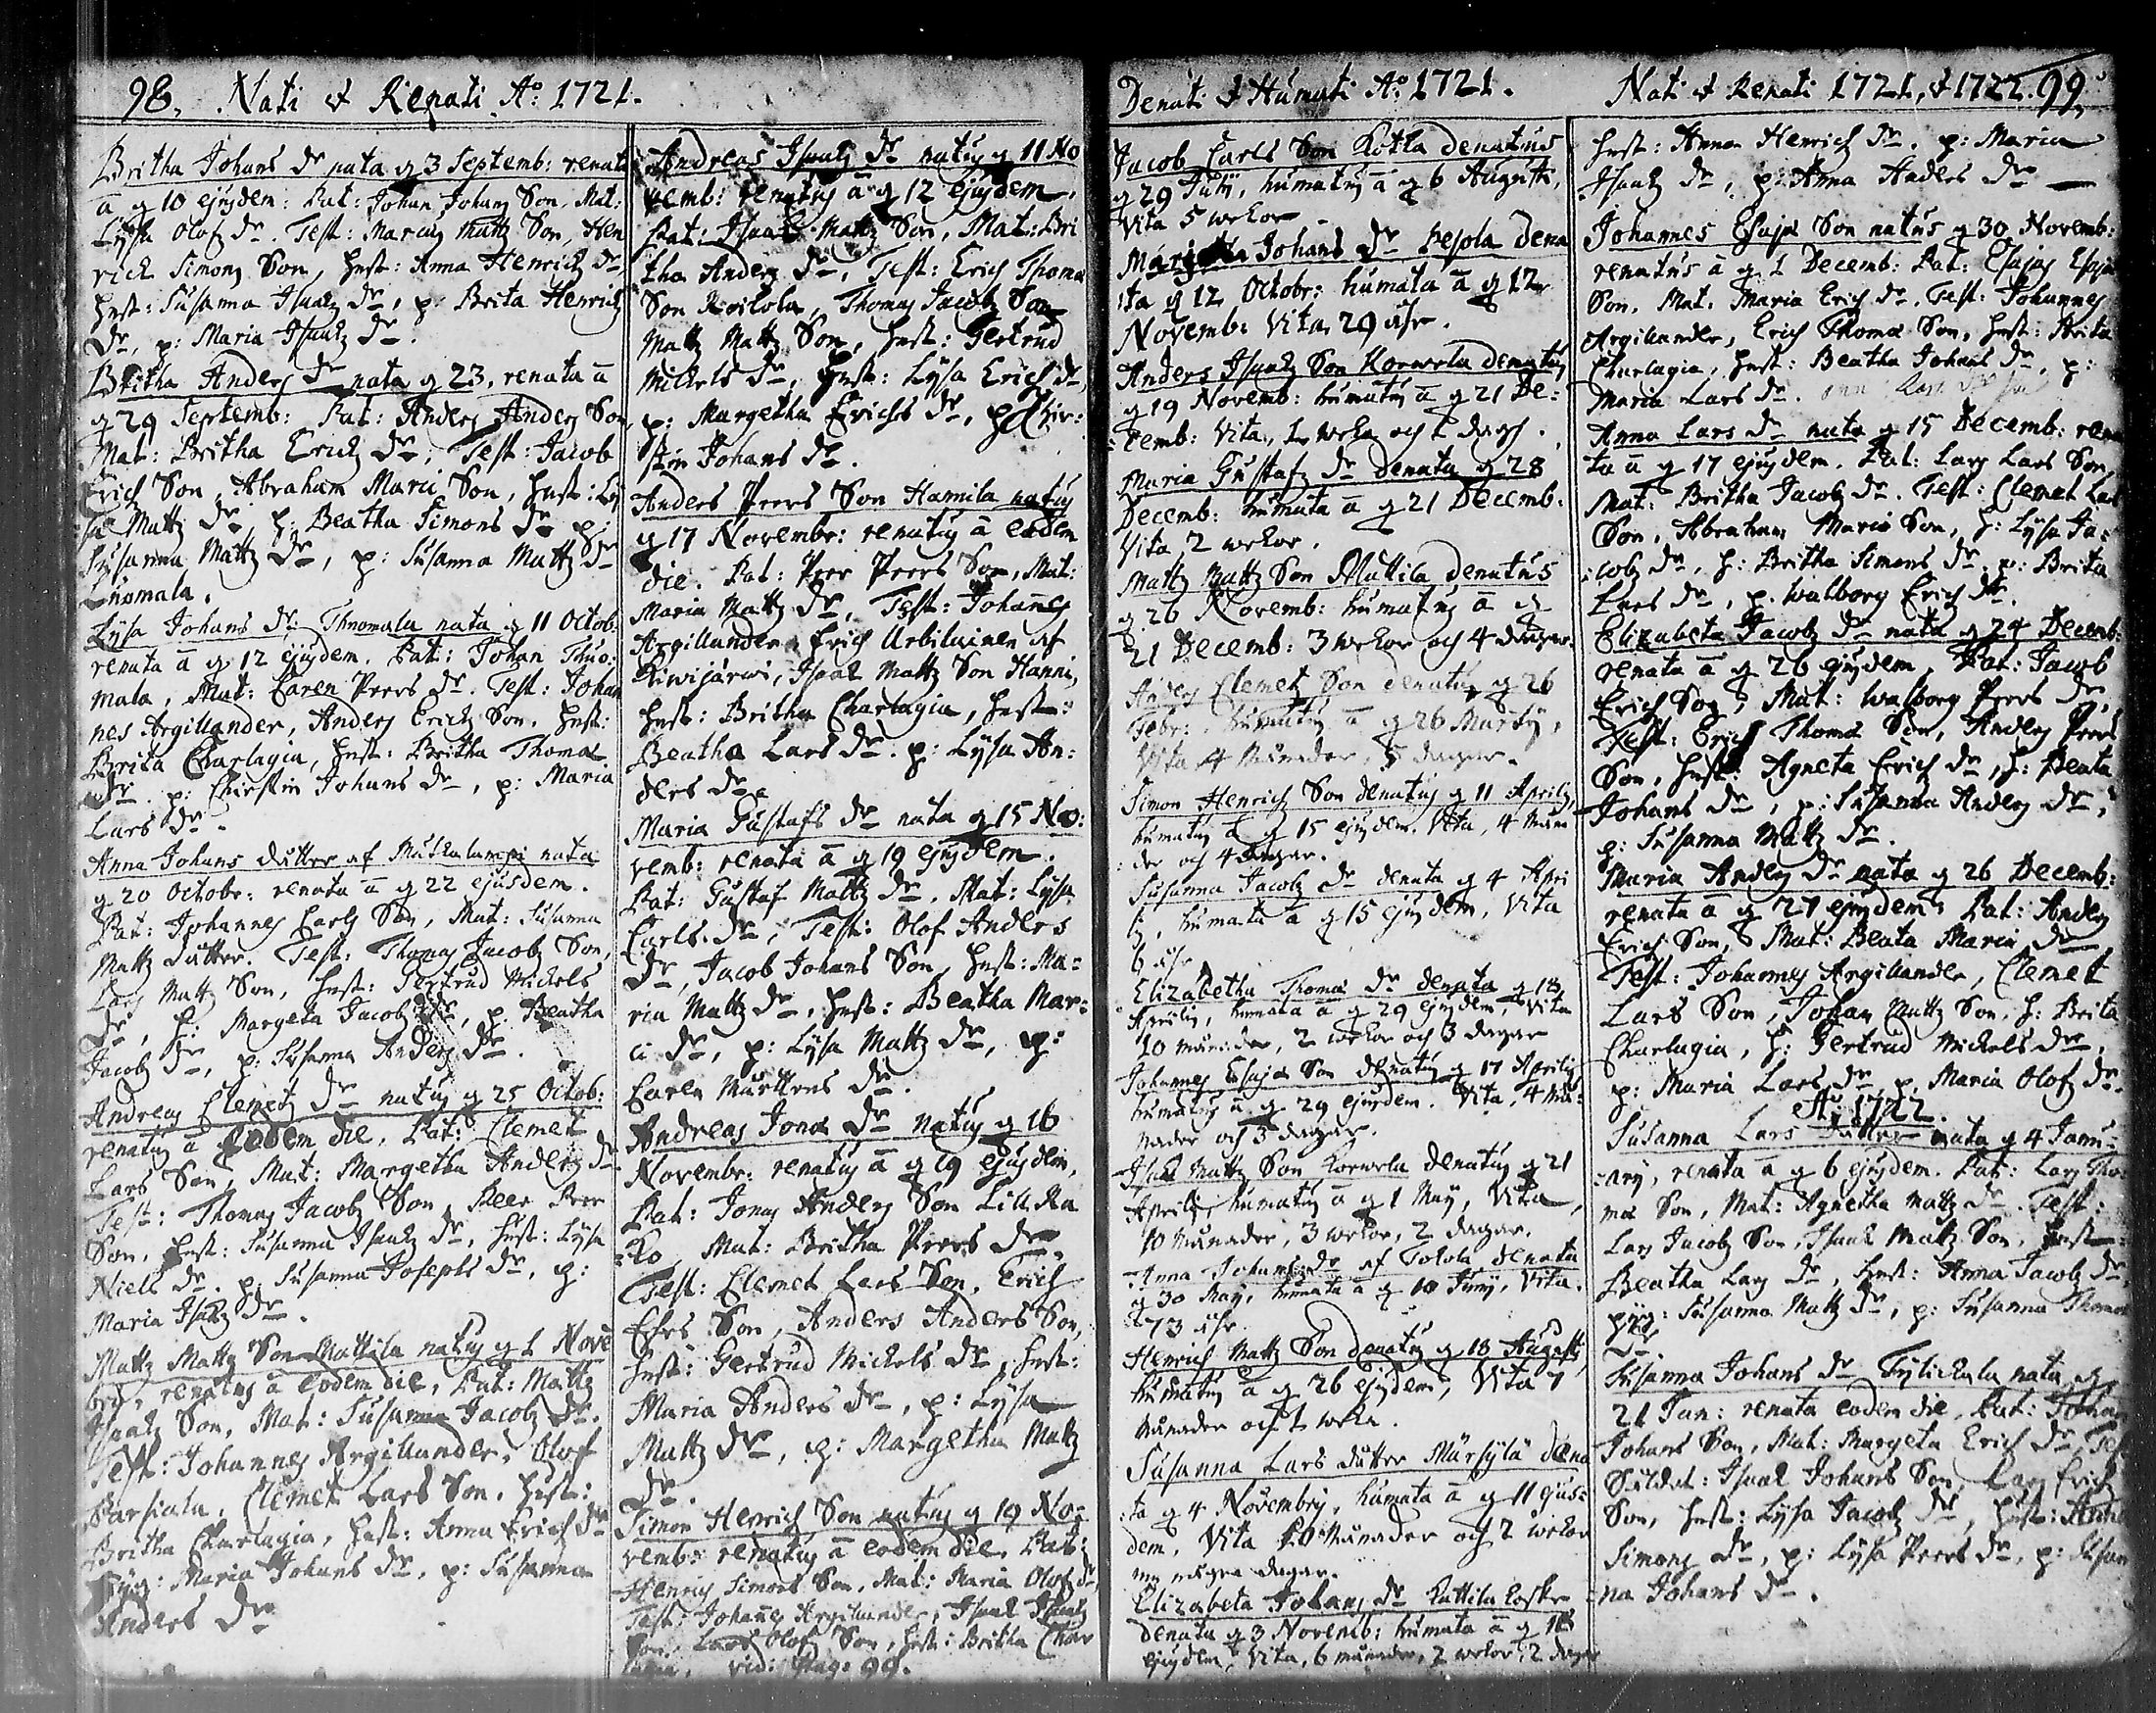 98. Nati & Renati Aº: 1721.
Britha Johans dr nata q 3 Septemb: renata
a q 10 ejusdem: Pat: Johan Johans Son, Mat:
Lysa Olofs dr. Test: Marcus Matts Son, Hen
rich Simons Son, hust: Anna Henrichs dr
hust: Susanna Isaaks dr, p: Brita Henrichs
dr, p: Maria Isaaks dr.
Britha Anders dr nata q 23, renata a
q 29 Septemb: Pat: Anders Anders Son
Mat: Britha Erichs dr, Test: Jacob
Erich Son, Abraham Marci Son, hust: Ly
sa Matts dr, h: Beatha Simons dr p:
Susanna Matts dr, p: Susanna Matts dr
Lysa Johans dr: Thuomala nata q 11 Octob:
renata a q 12 ejusdem. Pat: Johan Thuo:
mala, Mat: Caren Peers dr. Test: Johan
nes Argillander, Anders Erichs Son, hust:
Brita Charlagia, hust: Britha Thomæ
dr. p: Chirstin Johans dr, p: Maria
Lars dr.
Anna Johans dutter af nata
q 20 Octobr: renata a q 22 ejusdem.
Pat: Johannes Carls Son, Mat: Susanna
Matts dutter. Test: Thomas Jacobs Son,
Lars Matts Son, hust: Gertrud Mickels
dr, h: Margeta Jacobs dr, p. Beatha
Jacobs dr, p: Susanna Anders dr.
Andreas Clemets dr natus q 25 Octob:
renatus a eodem die, Pat: Clemet
Lars Son, Mat: Margetha Anders dr
Test: Thomas Jacobs Son, Peer Peer
Son, hust: Susanna Isaaks dr, hust: Lysa
Niels dr. p: Susanna Josephs dr, p:
Maria Isaks dr.
Matts Matts Son Mattila natus q 1 Nove
bris, renatus a eodem die, Pat: Matts
Isaaks Son, Mat: Susanna Jacobs dr.
Test: Johannes Argillander, Olof
Parsiala, Clemet Lars Son, hust:
Britha Charlagia, hust: Anna Erichs dr
pyg: Maria Johans dr, p: Susanna
Anders dr
Andreas Isaaks dr natus q 11 No
vemb: renatus a q 12 ejusdem.
Pat: Isaac Matts Son, Mat: Bri
tha Anders dr, Test: Erich Thomæ
Son Thomas Jacobs Son
Matts Matts Son, hust: Gertrud
Mickels dr, hust: Lysa Erichs dr,
p: Margetha Erichs dr, p Chir:
stin Johans dr.
Anders Peers Son Hamila natus
q 17 Novembr: renatus a eodem
die. Pat: Peer Peers Son, Mat:
Maria Matts dr, Test: Johannes
Argillander, Erich Urbilainen af
Kiwijärwi, Isaac Matts Son Hanni,
hust: Britha Charlagia, hust:
Beatha Lars dr. p: Lysa An:
ders dr.
Maria Gustafs dr nata q 15 No:
vemb: renata a q 19 ejusdem.
Pat: Gustaf Matts dr, Mat: Lysa
Carls dr, Test: Olof Anders
dr, Jacob Johans Son, hust: Ma:
ria Matts dr, hust: Beatha Mar:
ci dr, p: Lysa Matts dr, p:
Carin Mårttens dr.
Andreas Jonæ dr natus q 16
Novembr: renatus a q 19 ejusdem,
Pat: Jonas Anders Son Lill Ra
ko, Mat: Britha Peers dr.
Test: Clemet Lars Son, Erich
Efrs Son, Anders Anders Son,
hust: Gertrud Mickels dr, hust:
Maria Anders dr, p: Lysa
Matts dr, p: Margetha Matts
dr.
Simon Henrich Son natus q 19 No:
vemb: renatus a eodem die. Pat:
Henrich Simons Son, Mat: Maria Olofs dr,
Test: Johannes Argillander, Isaac Isaaks
Son, Lars Olofs Son, hust: Britha Char
lagia, vid: Pag: 99.
Denati & Humati Aº: 1721.
Jacob Carls Son Kotka denatus
q 29 Julij, humatus a q 6 Augusti,
Vita 5 wekor.
Margeta Johans dr dena
ta q 12 Octobr: humata a q 12
Novemb: Vita, 29 åhr.
Anders Isaaks Son Korwela denatus
q 19 Novemb: humatus a q 21 De:
cemb: Vita, 1 weka och 1 dagh.
Maria Gustafs dr denata q 28
Decemb: humata a q 21 Decemb:
Vita, 2 wekor.
Matts Matts Son Mattila denatus
q 26 Novemb: humatus a q
21 Decemb: 3 wekor och 4 dagar.
Anders Clemets Son denatus q 26
Febr: humatus a q 26 Martij,
Vita 4 Månader, 5 dagar.
Simon Henrichs Son denatus q 11 Aprilis,
humatus a q 15 ejusdem. Vita, 4 Måna
der och 4 dagar.
Susanna Jacobs dr denata q 4 Apri
lis, humata a q 15 ejusdem, Vita
6 åhr
Elizabetha Thomæ dr denata q 13
Aprilis, humata a q 29 ejusdem, Vita
10 månader, 2 wekor och 3 dagar
Johannes Esajæ Son denatus q 17 Aprilis
humatus a q 29 ejusdem. Vita, 4 Må:
nader och 3 dagar.
Isaac Matts Son Korwela denatus q 21
Aprilis, humatus a q 1 Maij, Vita,
10 Månader, 3 wekor, 2 dagar.
Anna Johans dr af Tolola denata
q 30 Maij, humata a q 10 Junij, Vita.
73 åhr.
Henrich Matts Son denatus q 13 Augusti,
humatus a q 26 ejusdem, Vita 7
månader och 1 weka.
Susanna Lars dutter Märsylä dena
ta q 4 Novembris, humata a q 11 ejus:
dem, Vita 10 Månader och 2 wekor
några dagar.
Elizabeta Johans dr
denata q 3 Novemb: humata a q 18
ejusdem, Vita, 6 månader, 2 wekor, 2 dagar
Nati & Renati 1721, & 1722. 99.
hust: Anna Henrichs dr. p: Maria
Isaaks dr, p: Anna Anders dr
Johannes Esajæ Son natus q 30 Novemb:
renatus a q 1 Decemb: Pat: Esajas Esajæ
Son, Mat. Maria Erichs dr. Test: Johannes
Argillander, Erich Thomæ Son, hust: Brita
Charlagia, hust: Beatha Johans dr, p:
Maria Lars dr.
Anna Lars dr nata q 15 Decemb: rena
ta a q 17 ejusdem. Pat: Lars Lars Son,
Mat: Britha Jacobs dr. Test: Clemet Lars
Son, Abraham Marci Son, h: Lysa Ja:
cobs dr, h: Britha Simons dr, p: Brita
Lars dr, p. Walborg Erichs dr.
Elizabeta Jacobs dr nata q 24 Decemb:
renata a q 26 ejusdem, Pat: Jacob
Erich Son, Mat: Walborg Peers dr,
Test: Erich Thomæ Son, Anders Peers
Son, hust: Agneta Erichs dr, h: Beata
Johans dr, p: Susanna Anders dr,
p: Susanna Matts dr.
Maria Anders dr nata q 26 Decemb:
renata a q 27 ejusdem, Pat: Anders
Erich Son, Mat: Beata Marci dr
Test: Johannes Argillander, Clemet
Lars Son, Johan Matts Son, h: Brita
Charlagia, h: Gertrud Mickels dr,
p: Maria Lars dr, p. Maria Olofs dr.
Aº: 1722.
Susanna Lars dutter nata q 4 Janu:
arij, renata a q 6 ejusdem. Pat: Lars Tho:
mæ Son, Mat: Agnetha Matts dr. Test:
Lars Jacobs Son, Isaac Matts Son, hust:
Beatha Lars dr, hust: Anna Jacobs dr,
pyg: Susanna Matts dr, p: Susanna Thomæ
dr.
Susanna Johans dr nata q
21 Jan: renata eodem die. Pat: Johan
Johans Son, Mat: Margeta Erichs dr, Test
Isaac Johans Son, Lars Erichs
Son, hust: Lysa Jacobs dr, hust: Anna
Simons dr, p: Lysa Peers dr, p: Susan
na Johans dr.